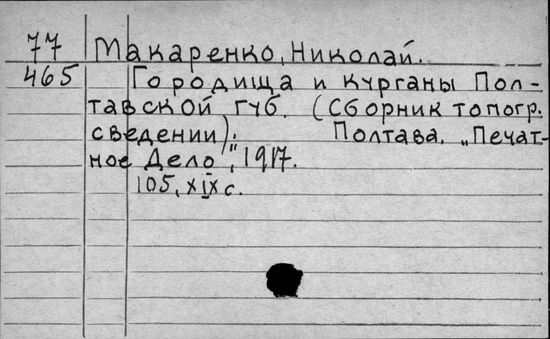 77 Макаренко, Николай.
465 Городища и курганы Пол-
тавской губ. (Сборник топогр.
сведении). Полтава, „Печат-
ное Дело", 1917.
105, XIX с.